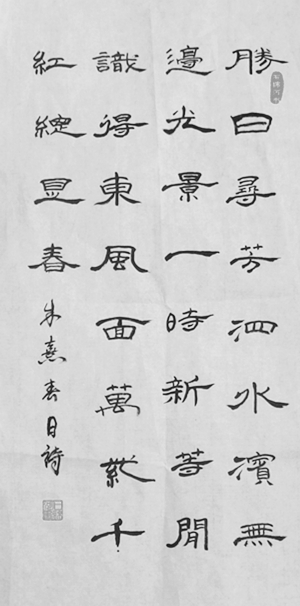 勝日尋芳泗水濱無
邊光景一時新等閒
識得東風面萬紫千
紅總是春 朱熹春日詩